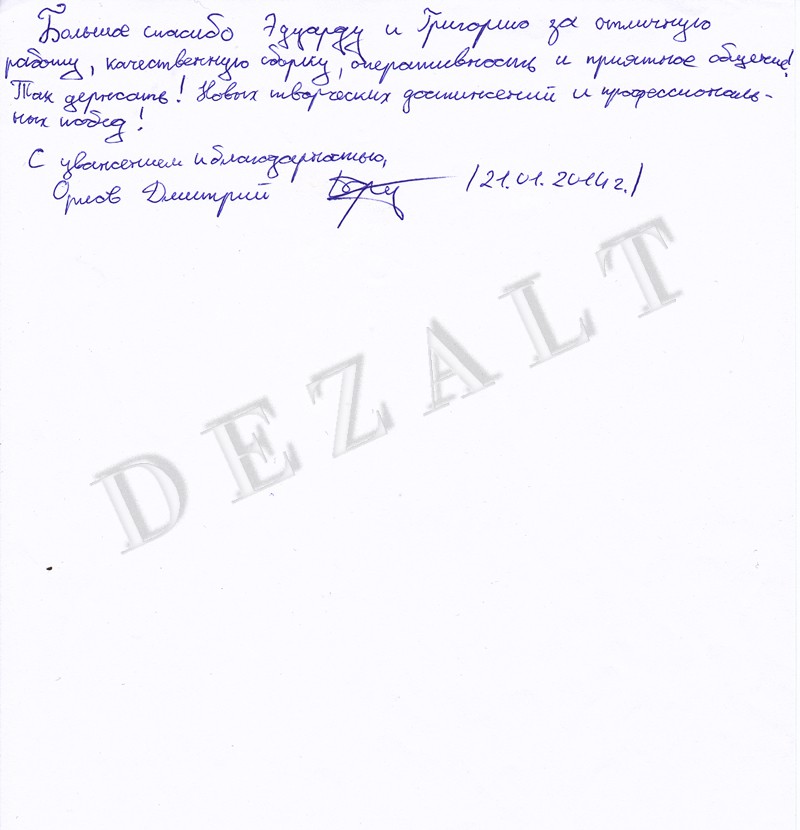 Большое спасибо Эдуарду и Григорию за отличную
работу, качественную сборку, оперативность и приятное общение!
Так держать! Новых творческих достижений и профессиональ-
ных побед!
С уважением и благодарностью,
Орлов Дмитрий /21.01.2014г./
DEZALT